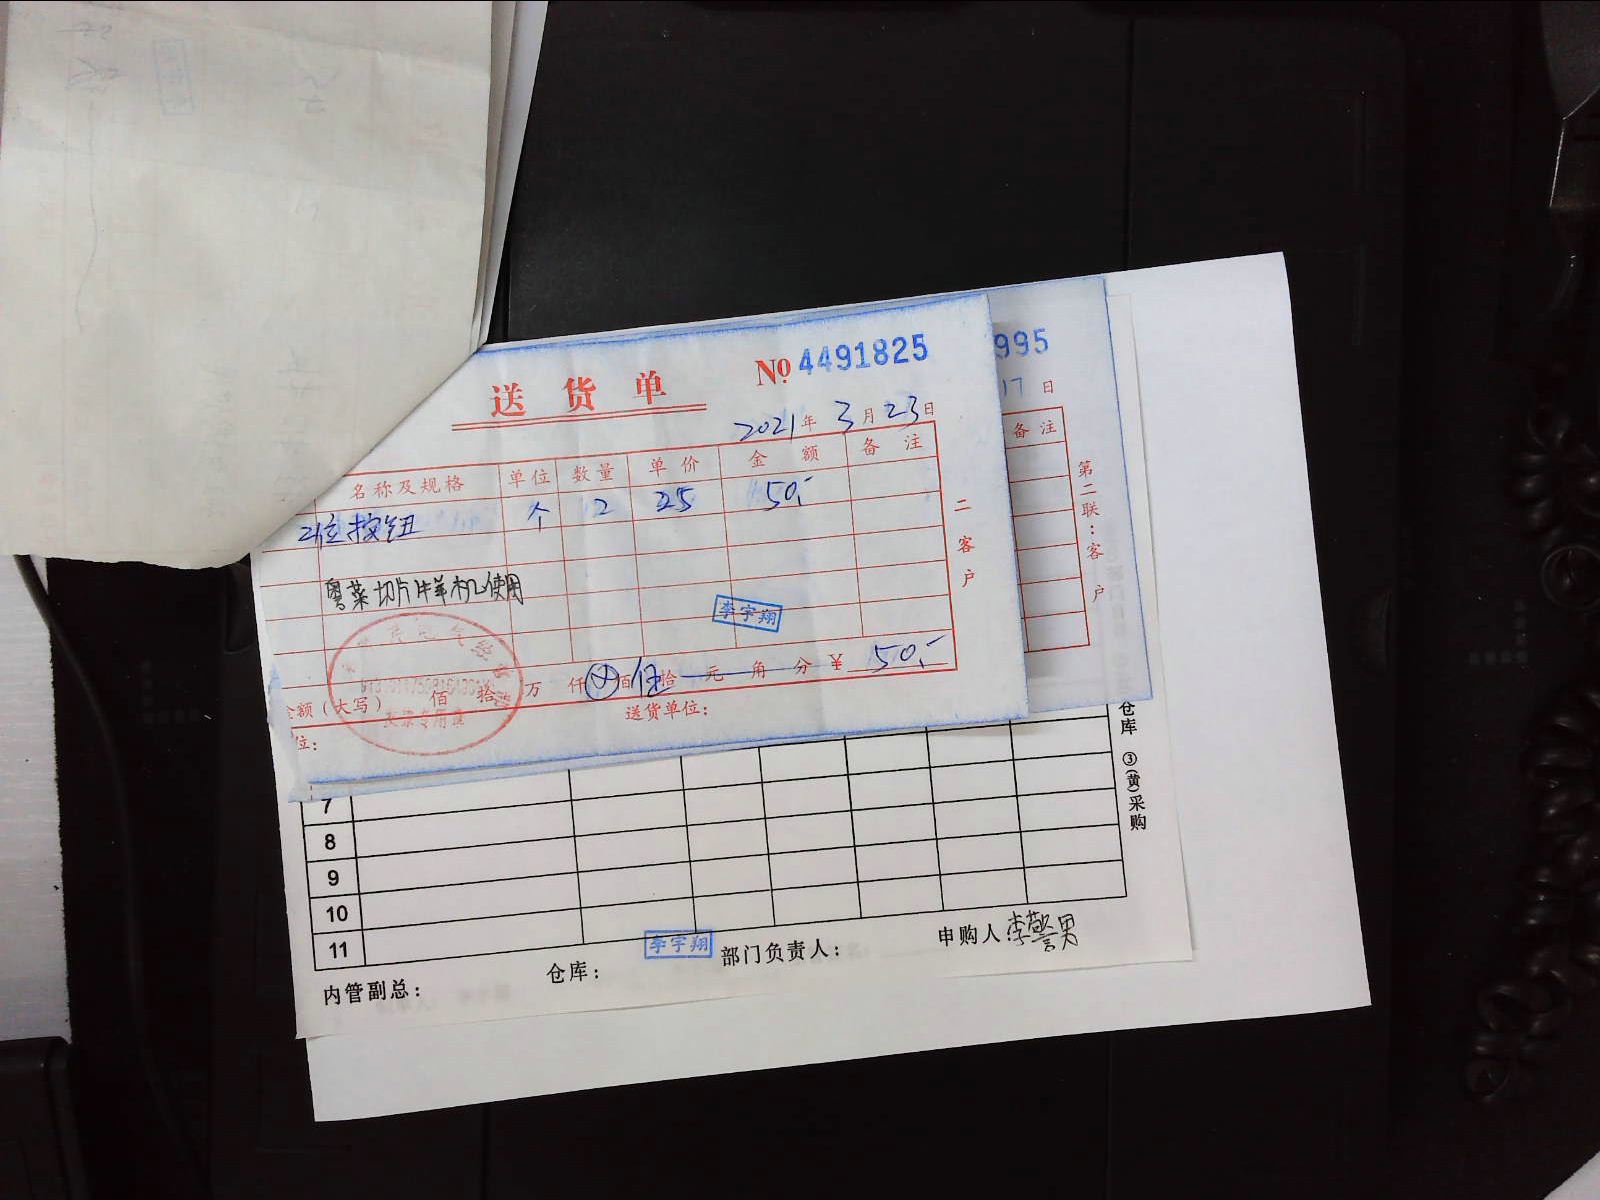 送货单 No 4491825
995
2021年3月23日
17日
名称及规格 单位 数量 单价 金额 备注
备注
2位按钮 个 2 25 50.-
粤菜切片样机使用
李宇翔
二客户
第二联:客户
金额(大写) 佰 拾 万 仟 佰伍拾 元 角 分 ¥ 50.-
发票专用章
位: 送货单位:
仓库 ③(黄)采购
7
8
9
10
11
内管副总: 仓库: 李宇翔 部门负责人: 申购人:李警男